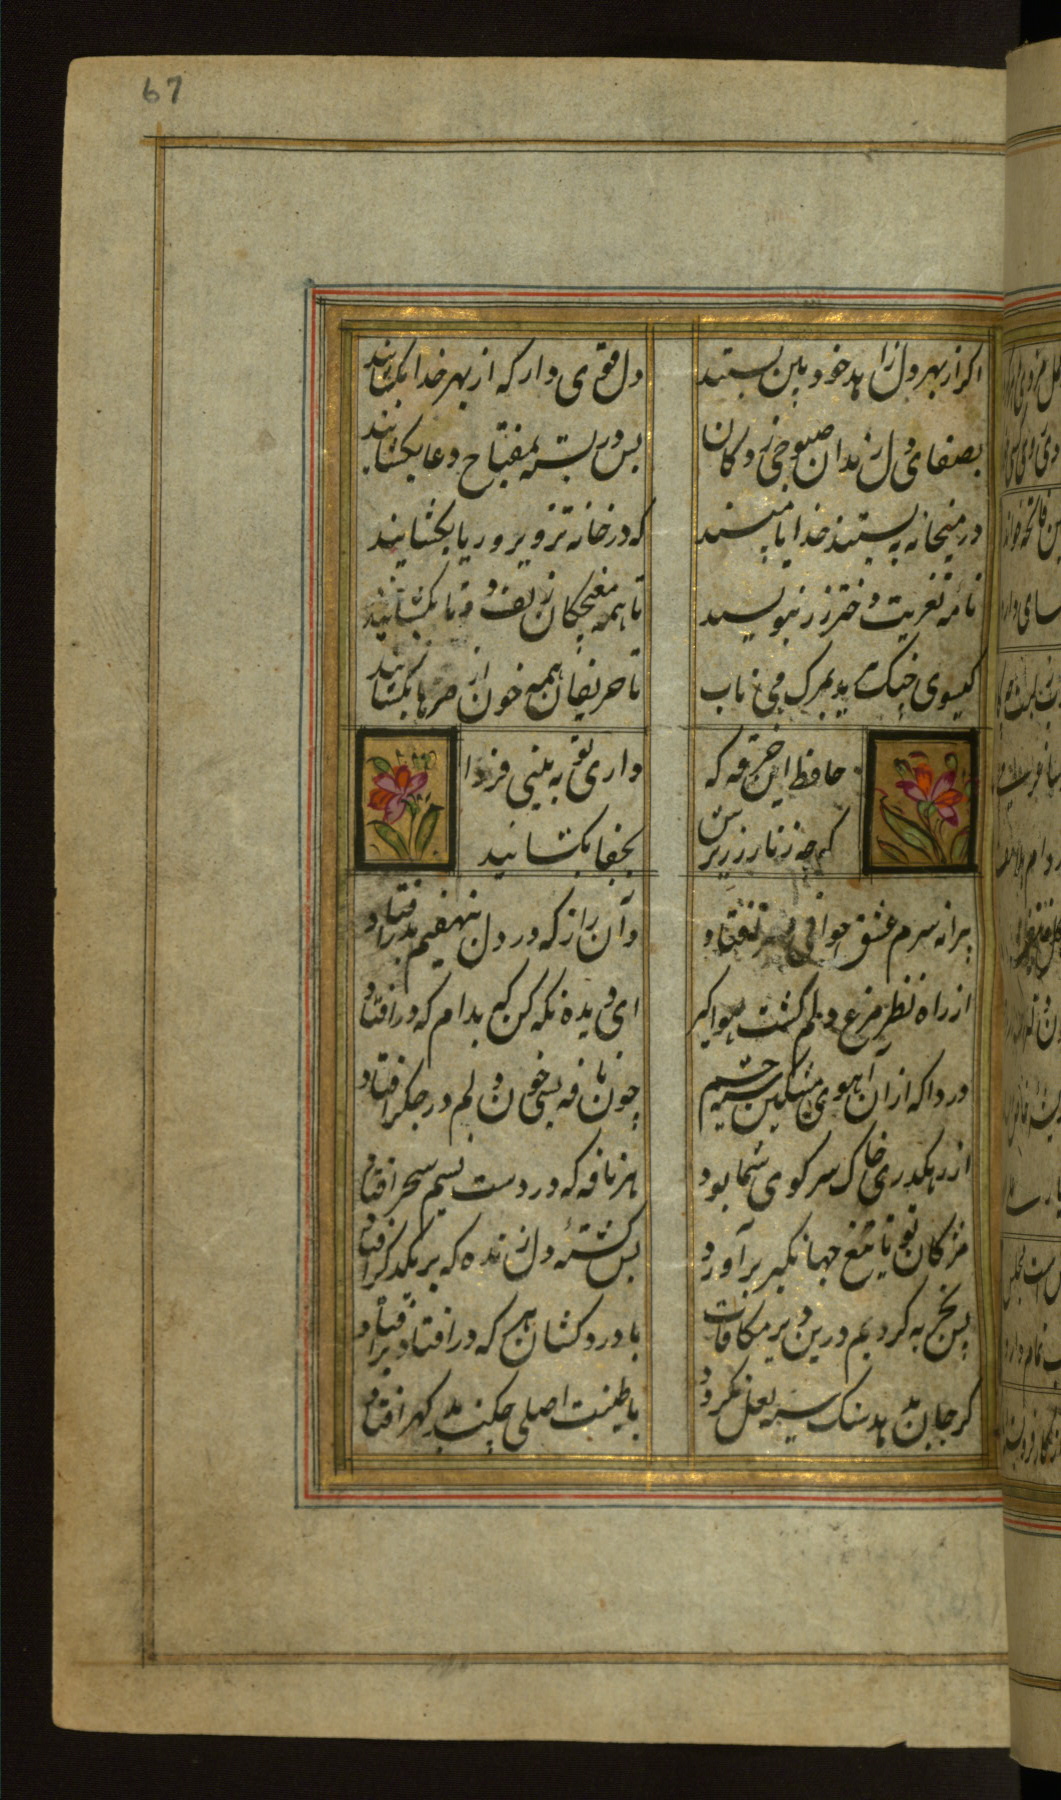 67
اکر از بهر دل زاهد خود بین بستند
دل قوی دار که از بهر خدا بکشایند
بصفای دل رندان صبوحی زدکان
بس در بسته بمفتاح دعا بکشایند
در میخانه به بستند خدایا مپسند
که در خانه تزویر و ریا بکشایند
نامه تعزیت دختر رز بنویسید
تا همه مغبچکان زلف دوتا بکشایند
کیسوی چنک ببرید بمرک می ناب
تا حریفان همه خون از مژها بکشایند
حافظ این خرقه که
داری تو به بینی فردا
که چه زنار ز زیرش
بجفا بکشایند
پیرانه سرم عشق جوانی بسر افتاد
وآن راز که در دل بنهفتیم بدر افتاد
از راه نظر مرغ دلم کشت هواکیر
ای دیده نکه کن که بدام که در افتاد
دردا که از آن آهوی مشکین سیه چشم
چون نافه بسی خون دلم در جکر افتاد
از رهکذری خاک سر کوی شما بود
هر نافه که در دست نسیم سحر افتاد
مژکان تو تا تیغ جهانکیر برآورد
بس کشته دل زنده که بر یکدکر افتاد
بس تجربه کردیم درین دیر مکافات
با درد کشان هر که در افتاد بر افتاد
کر جان بدهد سنک سیه لعل نکردد
با طینت اصلی چکند بد کهر افتاد